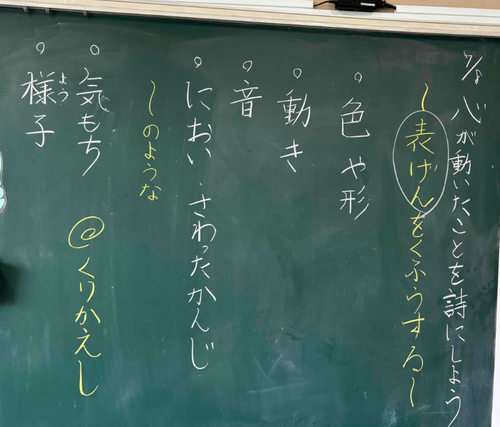 7/8 心が動いたことを詩にしよう
〜表げんをくふうする〜
○色や形
○動き
○音
○におい、さわったかんじ
〜のような
○気もち @くりかえし
○様子
よう